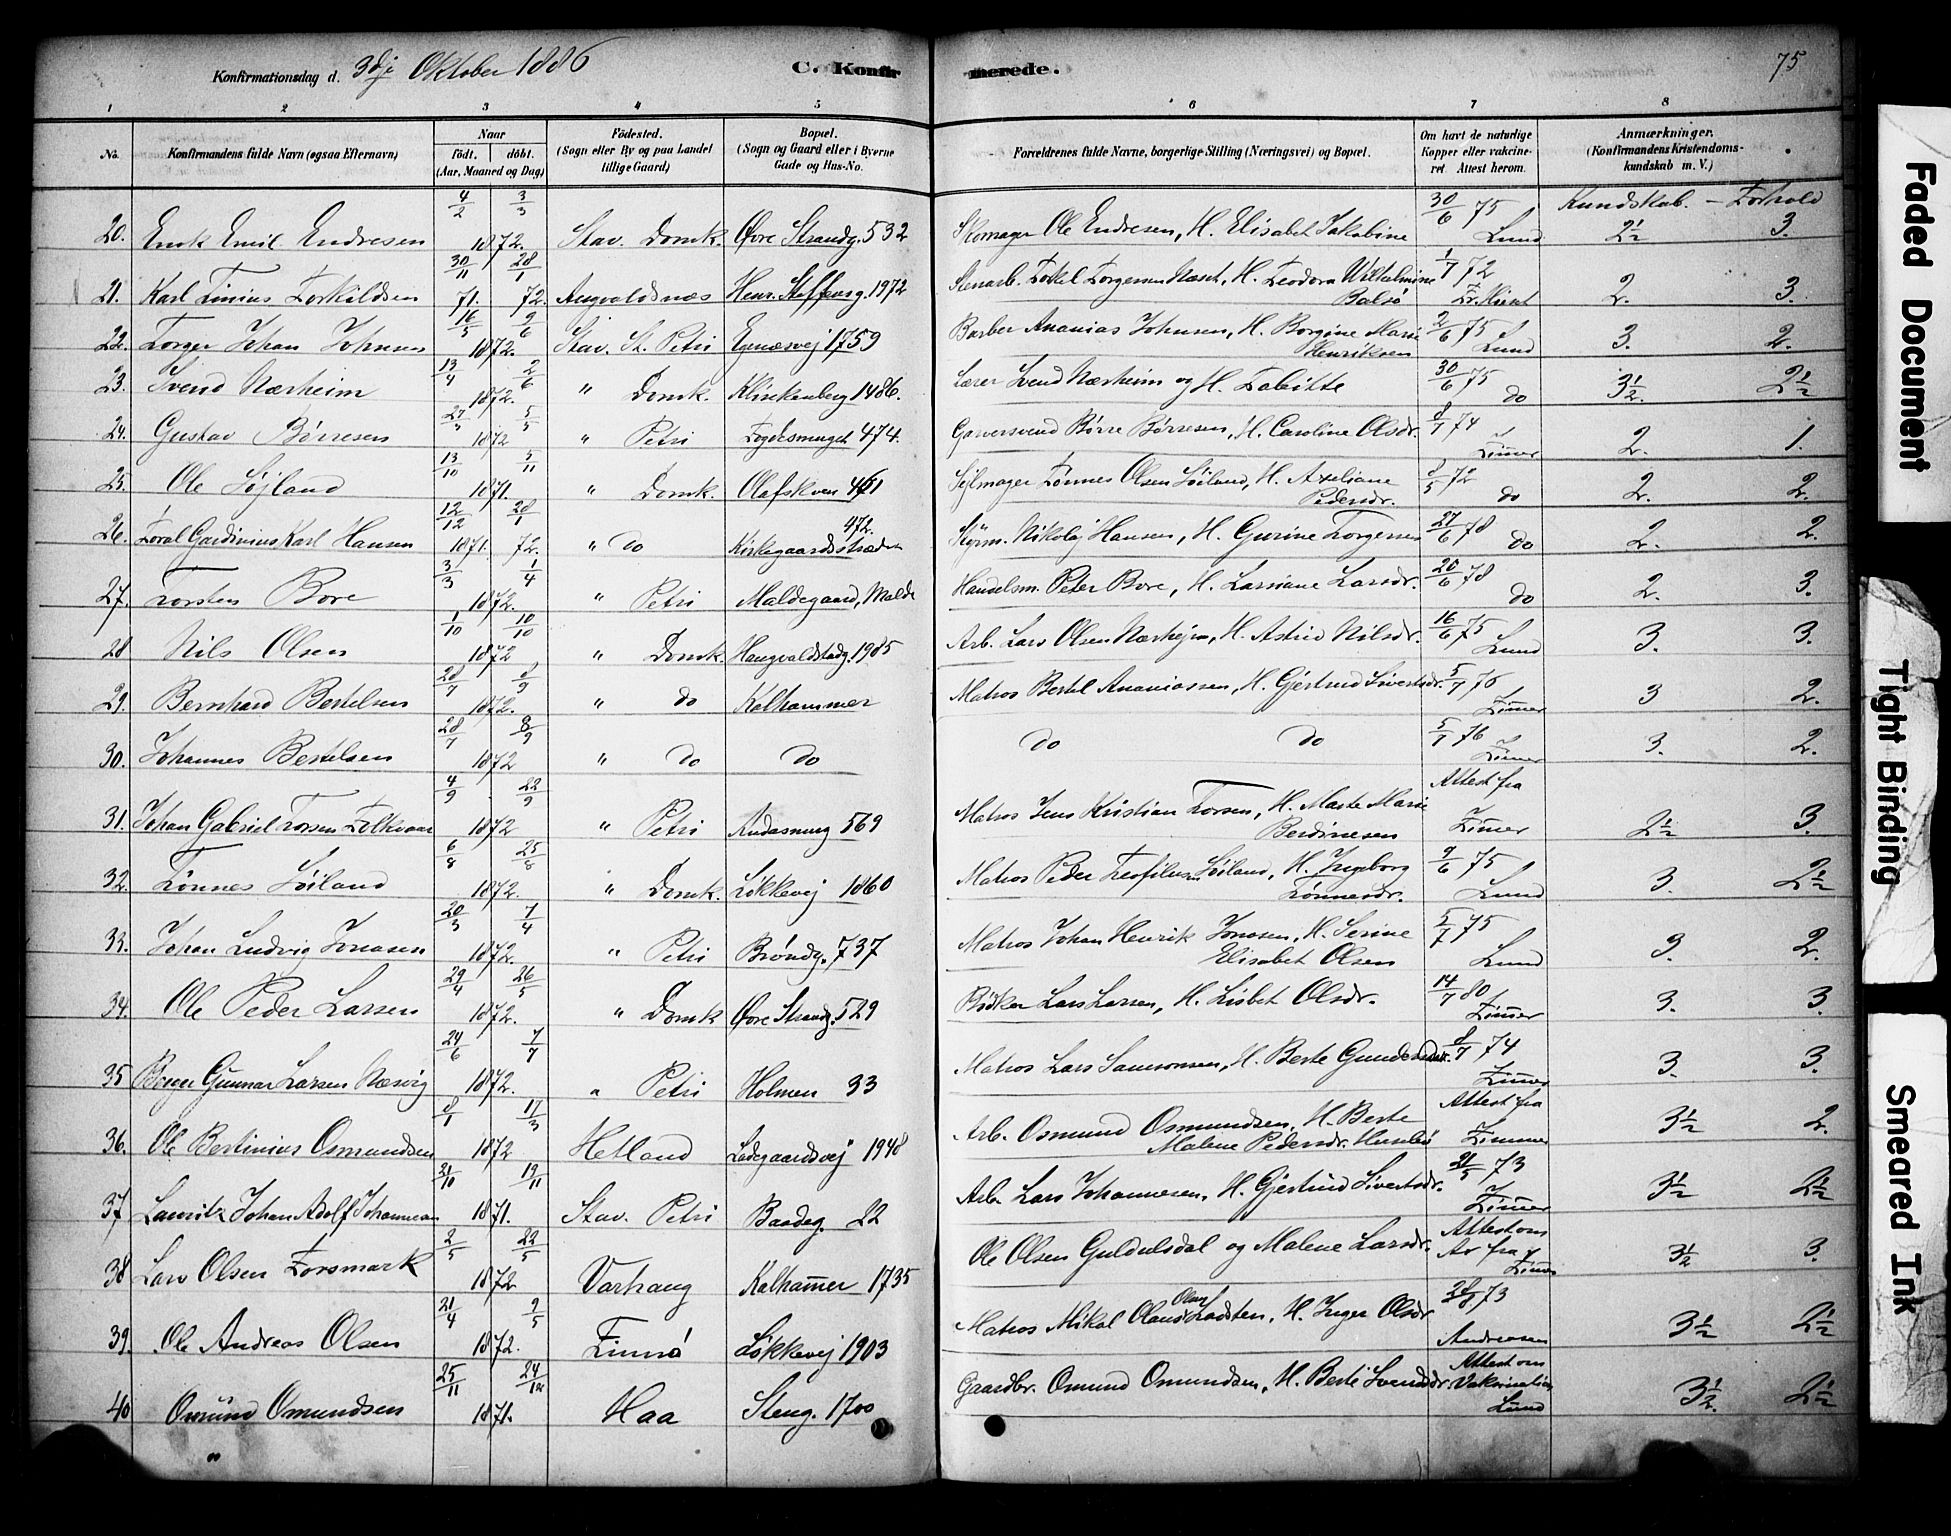 Konfirmationsdag d. 3die Oktober 1886 C. Konfir merede. 75
1 2 3 4 5 6 7 8
No. Konfirmandens fulde Navn (ogsaa Efternavn) Naar født. døbt. (Aar, Maaned og Dag) Fødested. (Sogn eller By og paa Landet tillige Gaard) Bopæl. (Sogn og Gaard eller i Byerne Gade og Hus-No. Forældrenes fulde Navne, borgerlige Stilling (Næringsvei) og Bopæl. Om havt de naturlige Kopper eller vakcineret Attest herom. Anmærkninger. (Konfirmandens Kristendomskundskab m. V.)
Kundskab. – Forhold
20. Enok Emil Endresen 4/2 3/3 1872. Stav. Domk. Øvre Strandg. 532 Skomager Ole Endresen, H. Elisabet Jakobine 30/6 75 Lund 2½ 3.
21. Karl Tinius Torkildsen 30/11 71. 28/1 72. Augvaldsnæs Henr. Steffensg. 1972 Stenarb. Torkel Torgersen Næset, H. Teodora Vilhelmine Balsø 1/7 72 2. 3.
22. Torger Johan Johnsen 16/5 9/6 1872. Stav. St. Petri Egenæsvej 1759 Barber Ananias Johnsen, H. Borgine Marie Henriksen 2/6 75 Lund 3. 2.
23. Svend Nærheim 13/4 2/6 1872. " Domk. Klinkenberg 1486. Lærer Svend Nærheim og H. Tabitte 30/6 75 do 3½. 2½
24. Gustav Børresen 27/3 5/5 1872 " Petri Fogdesmuget 474. Garversvend Børre Børresen, H. Caroline Olsdr. 8/7 74 Zimer 2. 1.
25. Ole Søjland 13/10 5/11 1871. " Domk. Olafskleven 461 Sejlmager Tønnes Olsen Søiland, H. Axeliane Pedersdr. 8/5 72 do 2. 2.
26. Toral Gardinius Karl Hansen 12/12 1871. 28/1 72. " do Kirkegaardsstræden 472. Styrm. Nikolaj Hansen, H. Gurine Torgersen 27/6 78 do 2. 2.
27. Torsten Bore 3/3 1/4 1872. " Petri Maldegaard, Malde Handelsm. Peter Bore, H. Larsiane Larsdr. 20/6 78 do 2. 3.
28 Nils Olsen 1/10 10/10 1872 " Domk. Haugvaldstadg. 1985 Arb. Lars Olsen Nærhejm, H. Astrid Nilsdr. 16/6 75 Lund 3. 3.
29. Bernhard Bertelsen 28/7 8/9 1872. " do Kalhammer Matros Bertel Ananiassen, H. Gjertrud Sivertsdr. 5/7 76 Zimer 3 2.
30. Johannes Bertelsen 28/7 8/9 1872 " do do do do 5/7 76 Zimer 3. 2.
31. Johan Gabriel Torsen Folkvaar 4/9 22/9 1872 " Petri Andasmug 569 Matros Jens Kristian Torsen, H. Marte Marie Berdinesen Attest fra Zimer 2½ 3.
32. Tønnes Søiland 6/8 25/8 1872. " Domk. Løkkevej 1860 Matros Peder Teofilus Søiland, H. Ingeborg Tønnesdr. 9/6 75 Lund 3. 2½
33. Johan Ludvig Jonasen 20/3 7/4 1872. " Petri Brøndg. 737 Matros Johan Henrik Jonasen, H. Serine Elisabet Olsen 5/7 75 Lund 3. 2.
34. Ole Peder Larsen 29/4 26/5 1872. " Domk Øvre Strandg. 529 Bødker Lars Larsen, H. Lisbet Olsdr. 14/7 80 Zimer 3. 3.
35 Berger Gunnar Larsen Næsvig 24/6 7/7 1872. " Petri Holmen 33 Matros Lars Samsonsen, H. Berte Gundersdatr. 8/7 74 Zimer 3. 3.
36. Ole Bertinius Osmundsen 8/1 17/3 1872 Hetland Ladegaardsvej 1948 Arb. Osmund Osmundsen, H. Berte Malene Pedersdr. Husebø Attest fra Zimmer 3½ 2.
37 Lauritz Johan Adolf Johannesen 21/10 19/11 1871. Stav. Petri Baadeg. 22 Arb. Lars Johannesen, H. Gjertrud Sivertsdr. 21/5 73 Zimer 3½ 2½
38 Lars Olsen Forsmark 2/5 22/5 1872 Varhaug Kalhamer 1735 Ole Olsen Guldulsdal og Malene Larsdr. Attest om Ar fra Zimer 3½ 3.
39. Ole Andreas Olsen 21/4 9/5 1872. Finnø Løkkevej 1903 Matros Mikal Olaus Olsen Ladsten, H. Inger Olsdr 28/8 73 Andreasen 3½ 2½
40 Osmund Omundsen 25/11 24/12 1871. Haa Steng. 1700 Gaardbr. Omund Omundsen, H. Berte Svendsdr Attest om Vakcination Lund 3½. 2½
Faded Document
Tight Binding
Smeared Ink